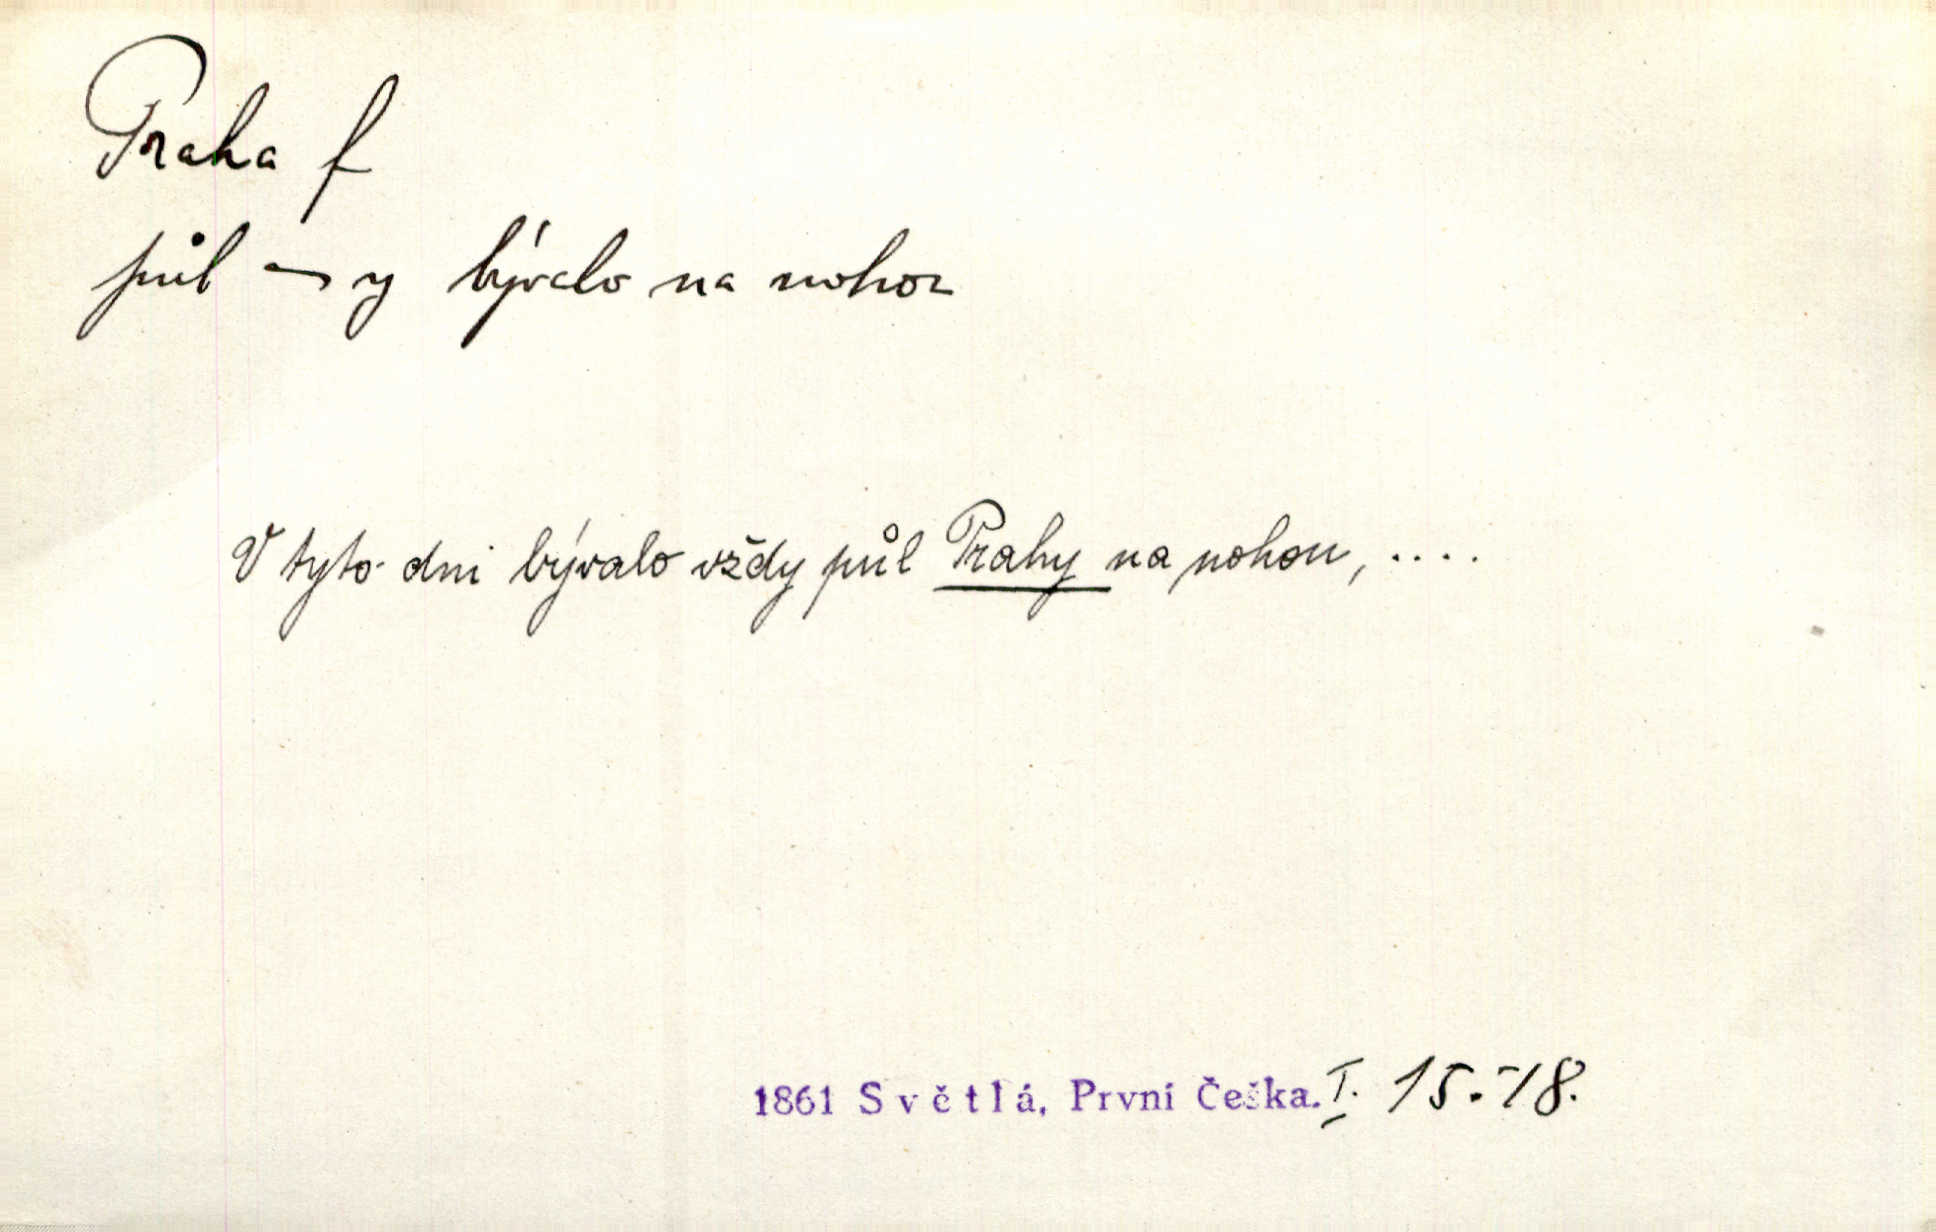 Praha f
půl — y bývalo na nohou
V tyto dni bývalo vždy půl Prahy na nohou, ....
1861 Světlá, První Češka. I. 15.-18.